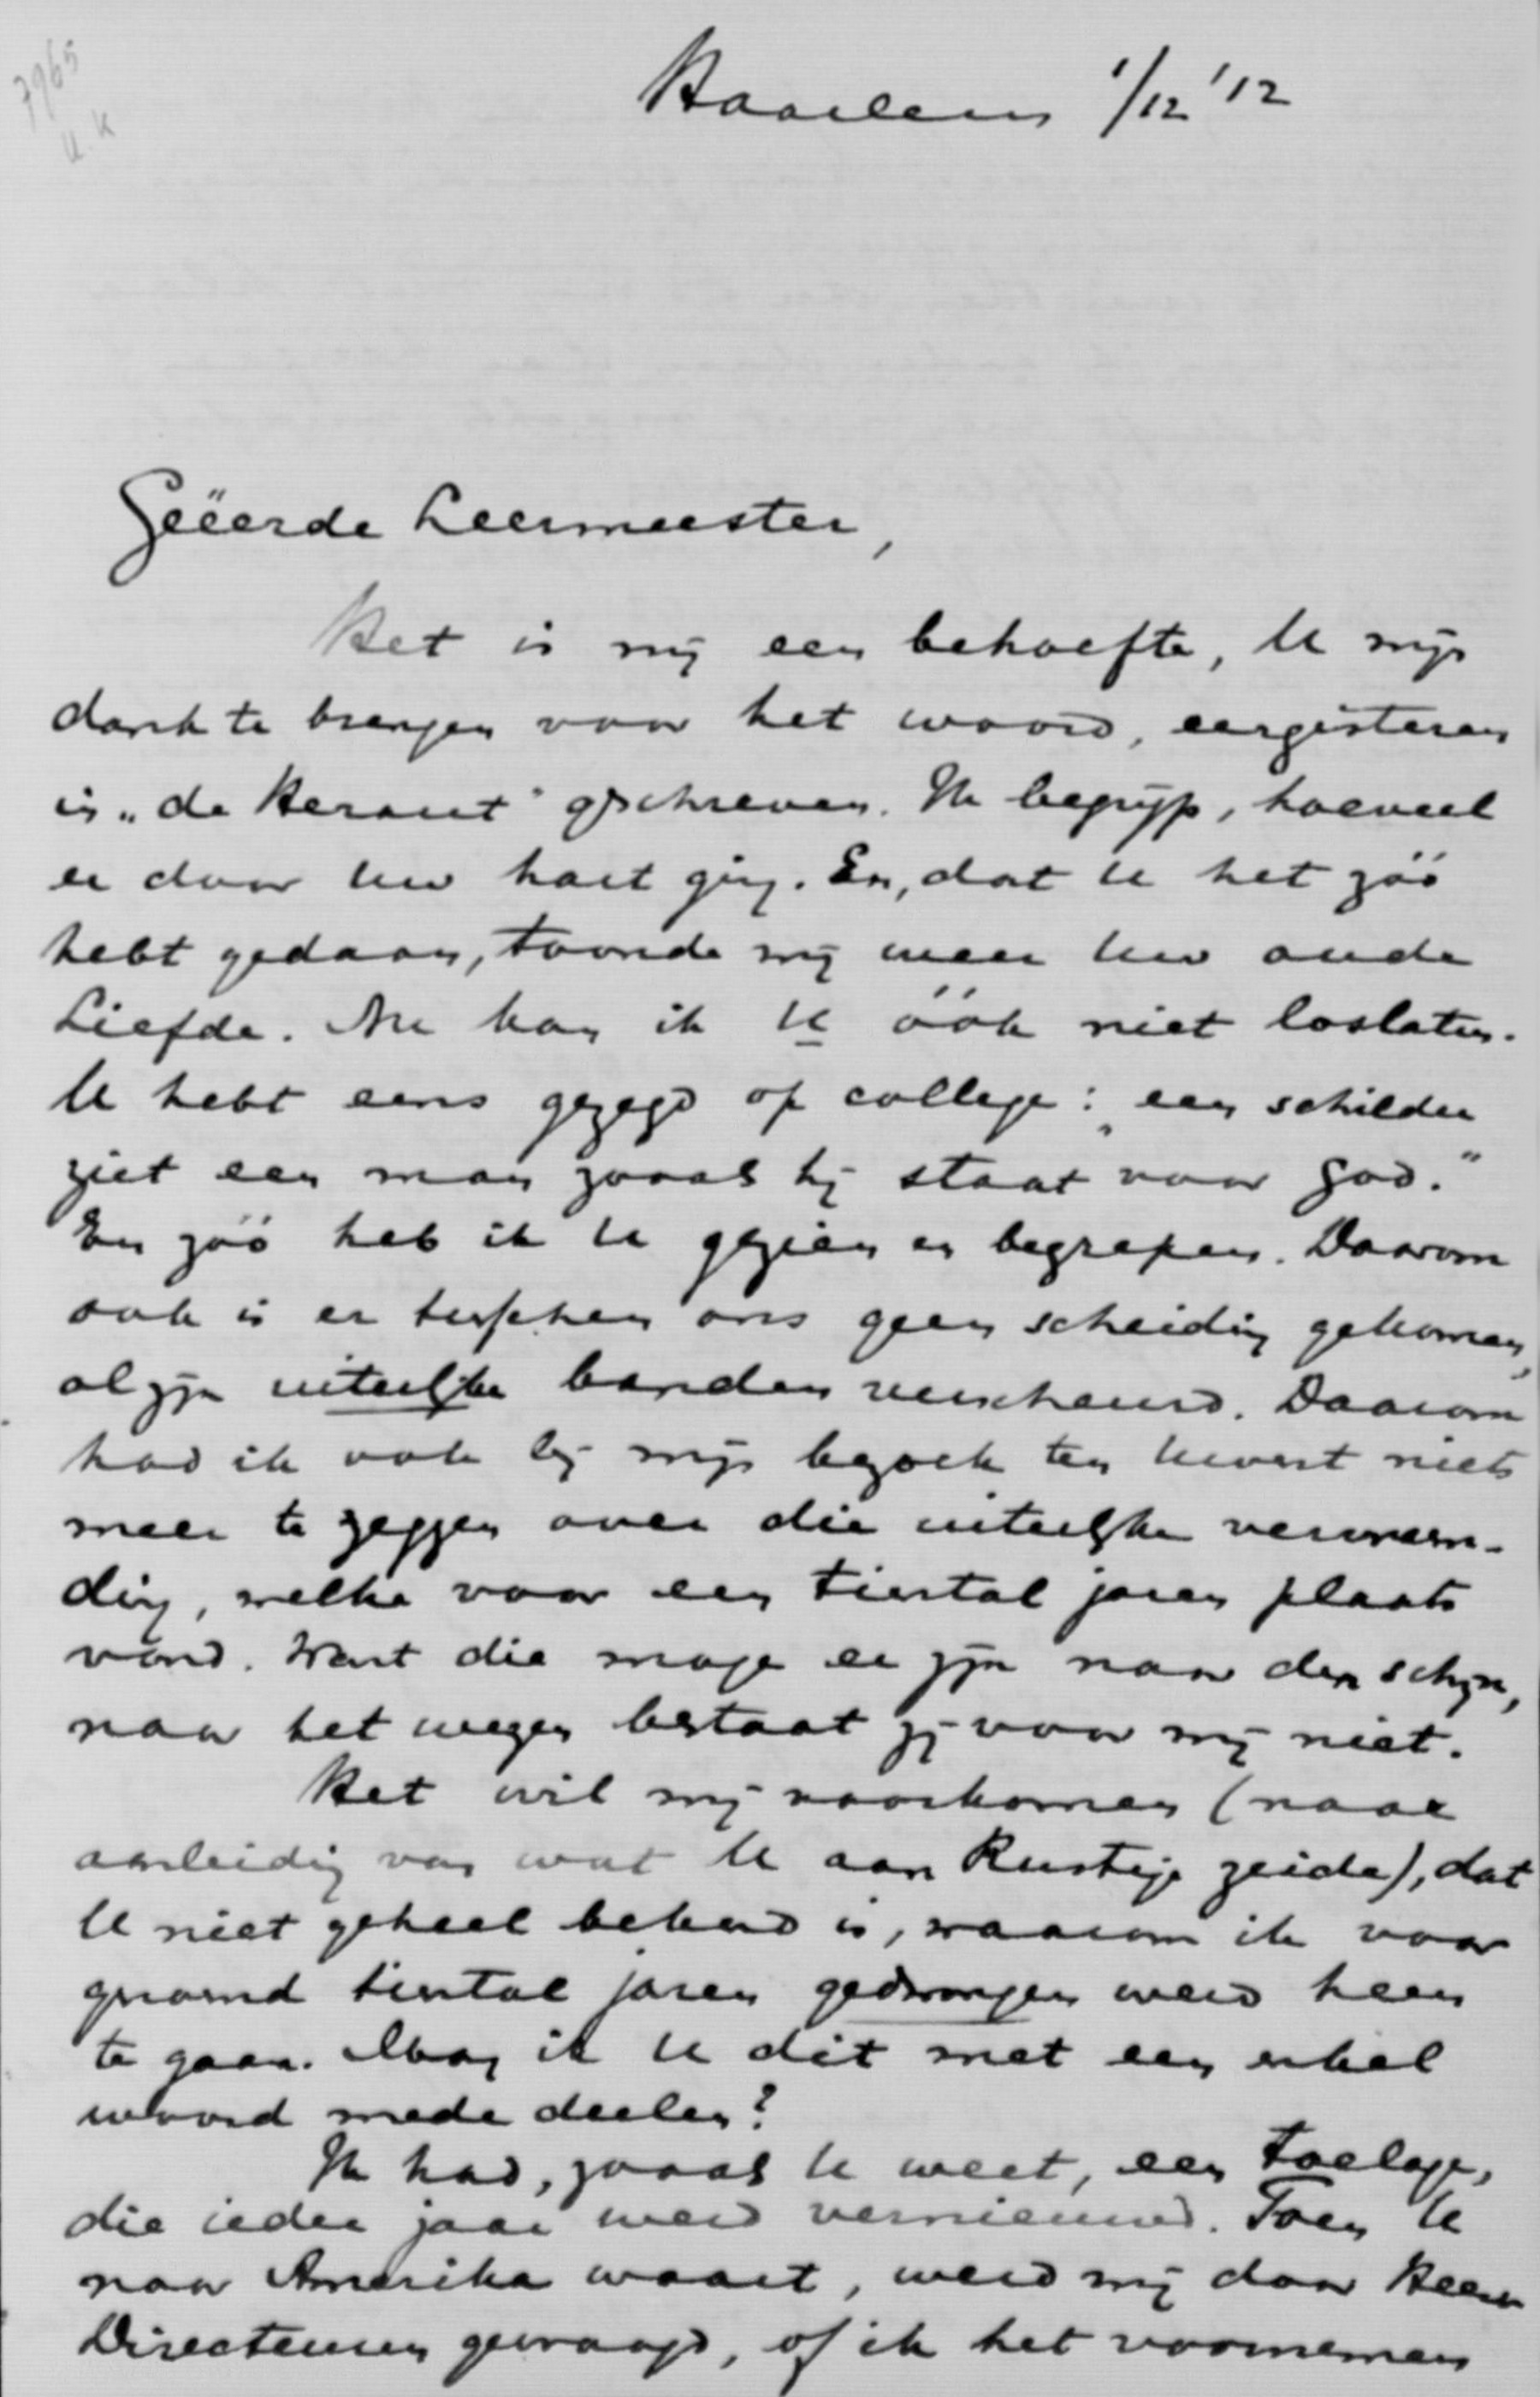 7965
U K
Haarlem 1/12 '12
Geëerde Leermeester,
Het is mij een behoefte, U mijn
dank te brengen voor het woord, eergisteren
in „de Heraut" geschreven. Ik begrijp, hoeveel
er door Uw hart ging. En, dat U het zóó
hebt gedaan, toonde mij weer Uw oude
Liefde. Nu kan ik U óók niet loslaten.
U hebt eens gezegd op college: „een schilder
ziet een man zooals hij staat voor God."
En zóó heb ik U gezien en begrepen. Daarom
ook is er tusschen ons geen scheiding gekomen,
al zijn uiterlijke banden verscheurd. Daarom
had ik ook bij mijn bezoek ten Uwent niets
meer te zeggen over die uiterlijke verwijdering,
ding, welke voor een tiental jaren plaats
vond. Want die moge er zijn naar den schijn,
naar het wezen bestaat zij voor mij niet.
Het wil mij voorkomen (naar
aanleiding van wat U aan Rustige zeide), dat
U niet geheel bekend is, waarom ik voor
genoemd tiental jaren gedrongen werd heen
te gaan. Mag ik U dit met een enkel
woord mede deelen?
Ik had, zooals U weet, een toelage,
die ieder jaar werd vernieuwd. Toen U
naar Amerika waart, werd mij door Heeren
Directeuren gevraagd, of ik het voornemen